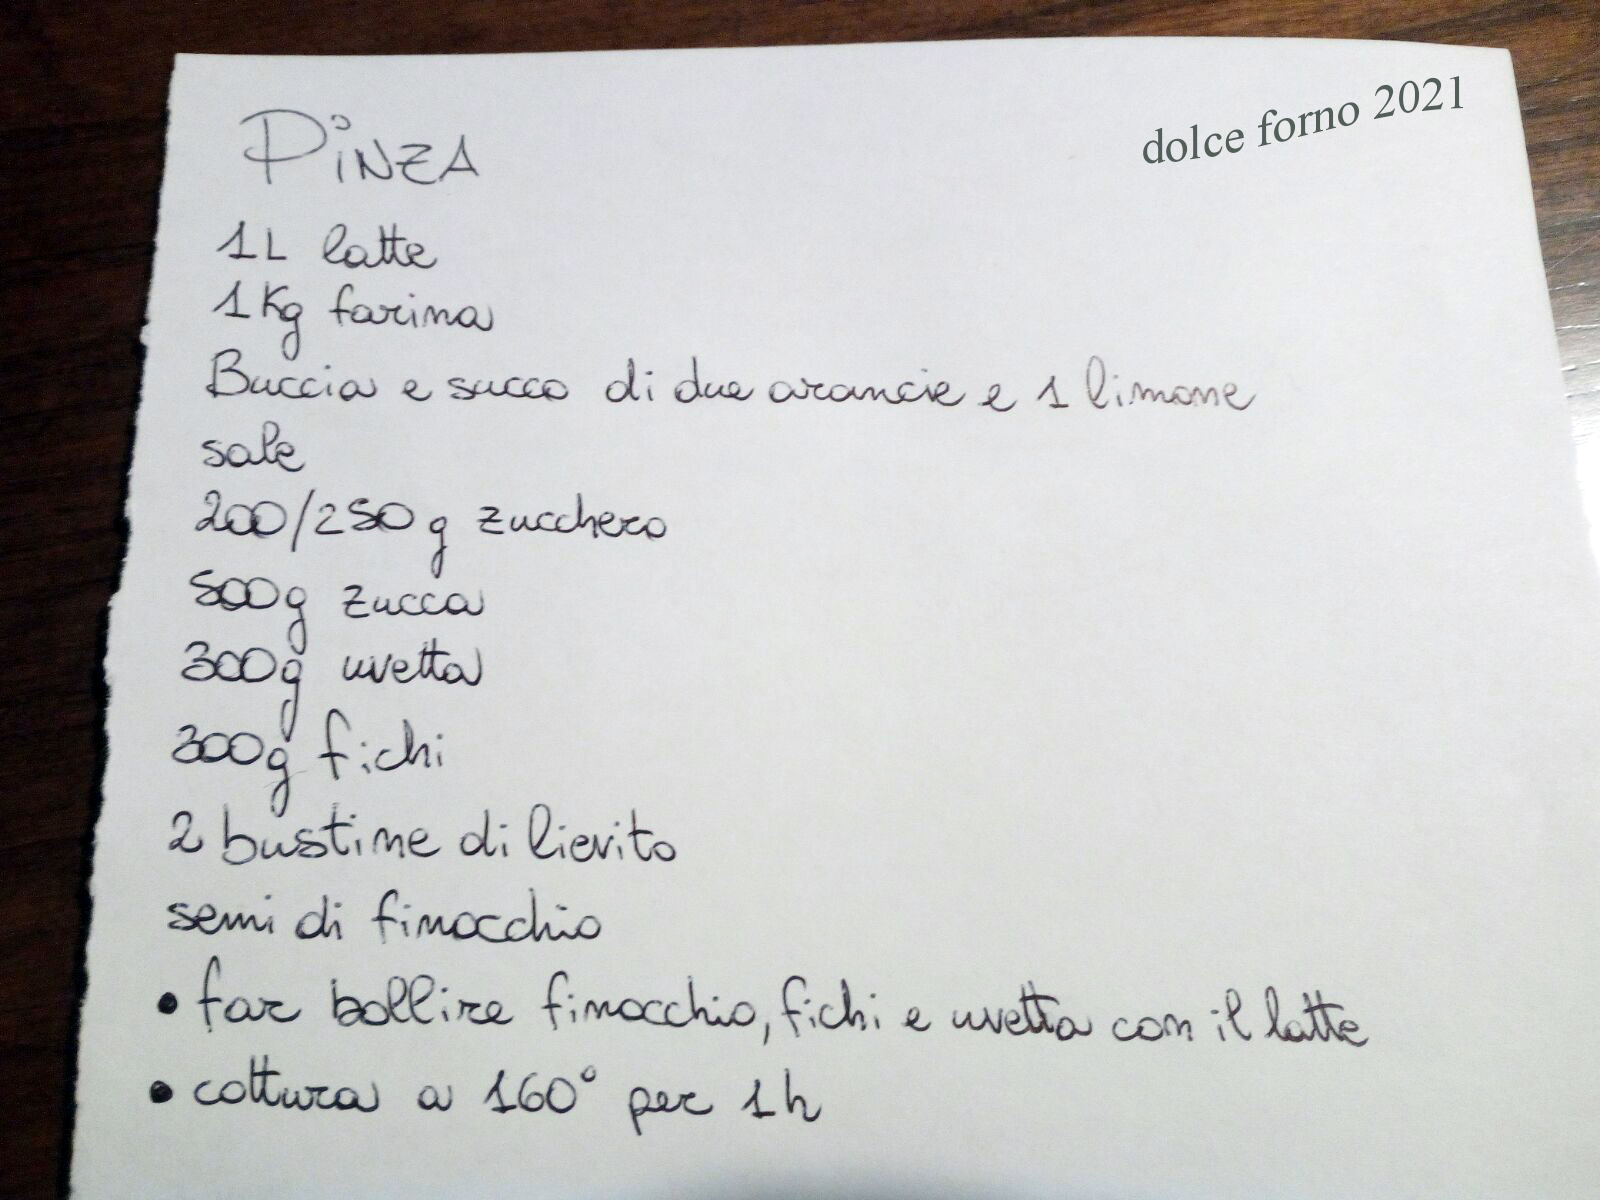 dolce forno 2021
PiNZA
1L latte
1Kg farina
Buccia e succo di due arancie e 1 limone
sale
200/250 g zucchero
500g zucca
300g uvetta
300g fichi
2 bustine di lievito
semi di finocchio
• far bollire finocchio, fichi e uvetta con il latte
• cottura a 160° per 1h